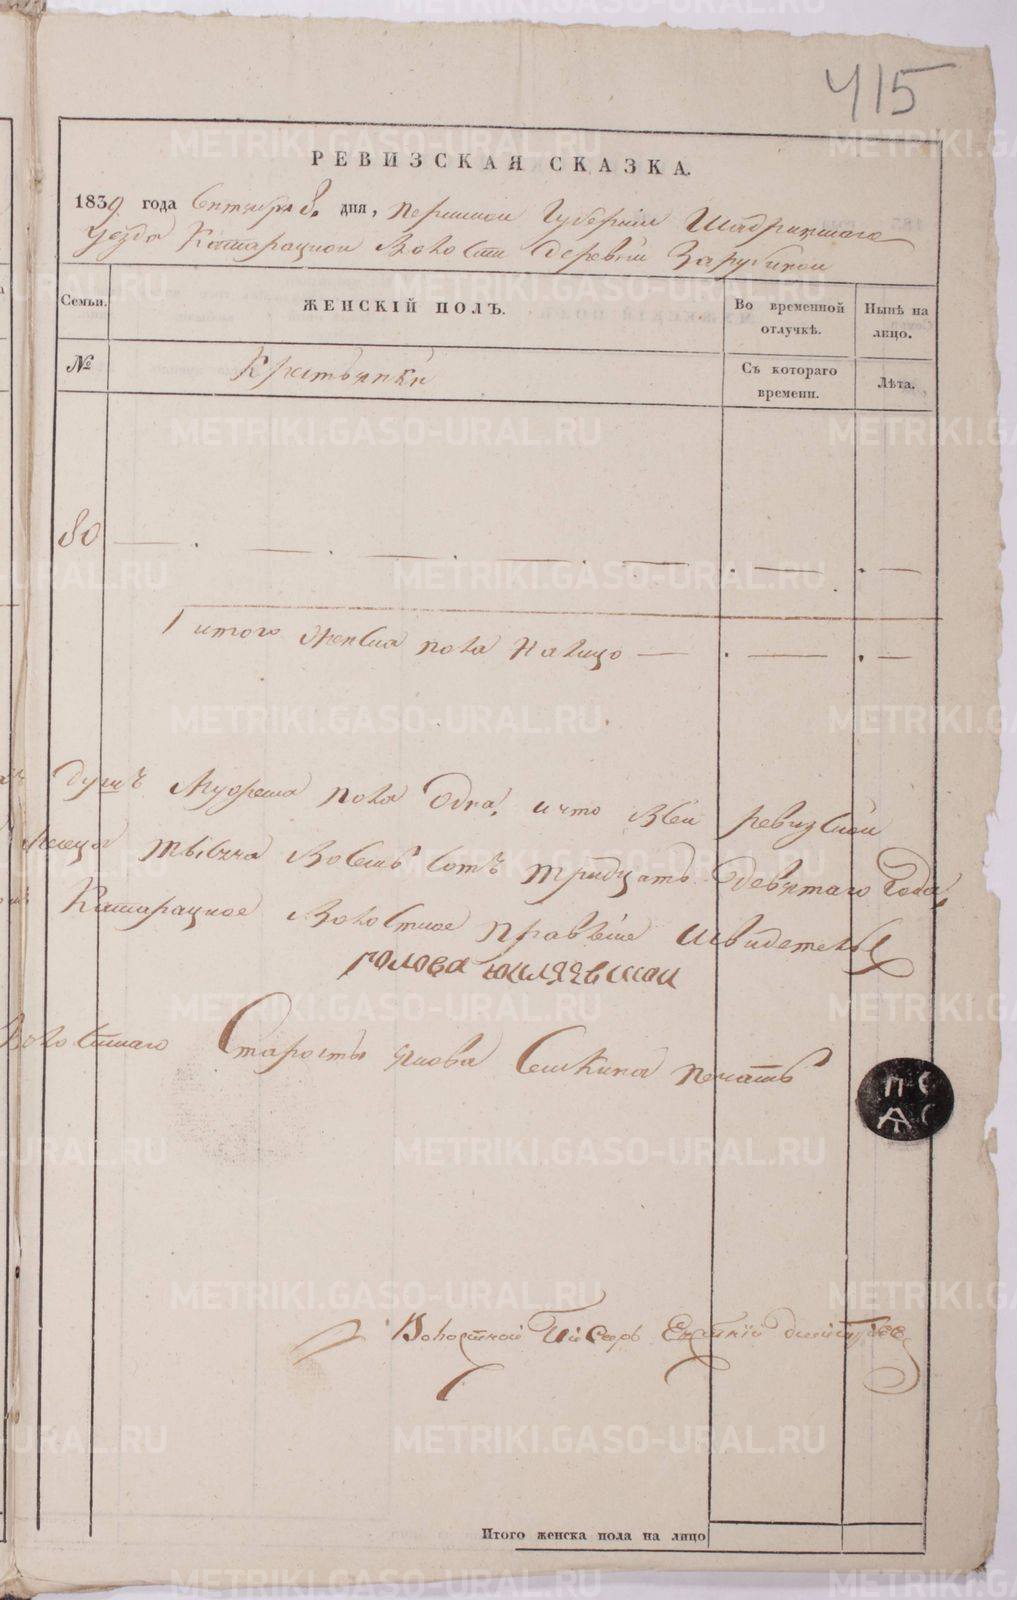 415
РЕВИЗСКАЯ СКАЗКА.
1839 года Сентября 8. дня, Пермской Губернии Шадринскаго
уезда Катарацкой Волости деревни Зарубиной
Семьи. ЖЕНСКІЙ ПОЛЪ. Во временной отлучкѣ. Нынѣ на лицо.
№ Крестьянки Съ котораго времени. Лѣта.
80
итого женска пола налицо
душъ Мужеска пола одна, и что в сей ревизской
тысяча восемь сотъ тридцать девятаго года,
Катарацкое Волостное правление свидетельс
голова
Волостнаго Старосты Якова Сешкина печать
П С
А С
Волостной Писарь
Итого женска пола на лицо
METRIKI.GASO-URAL.RU